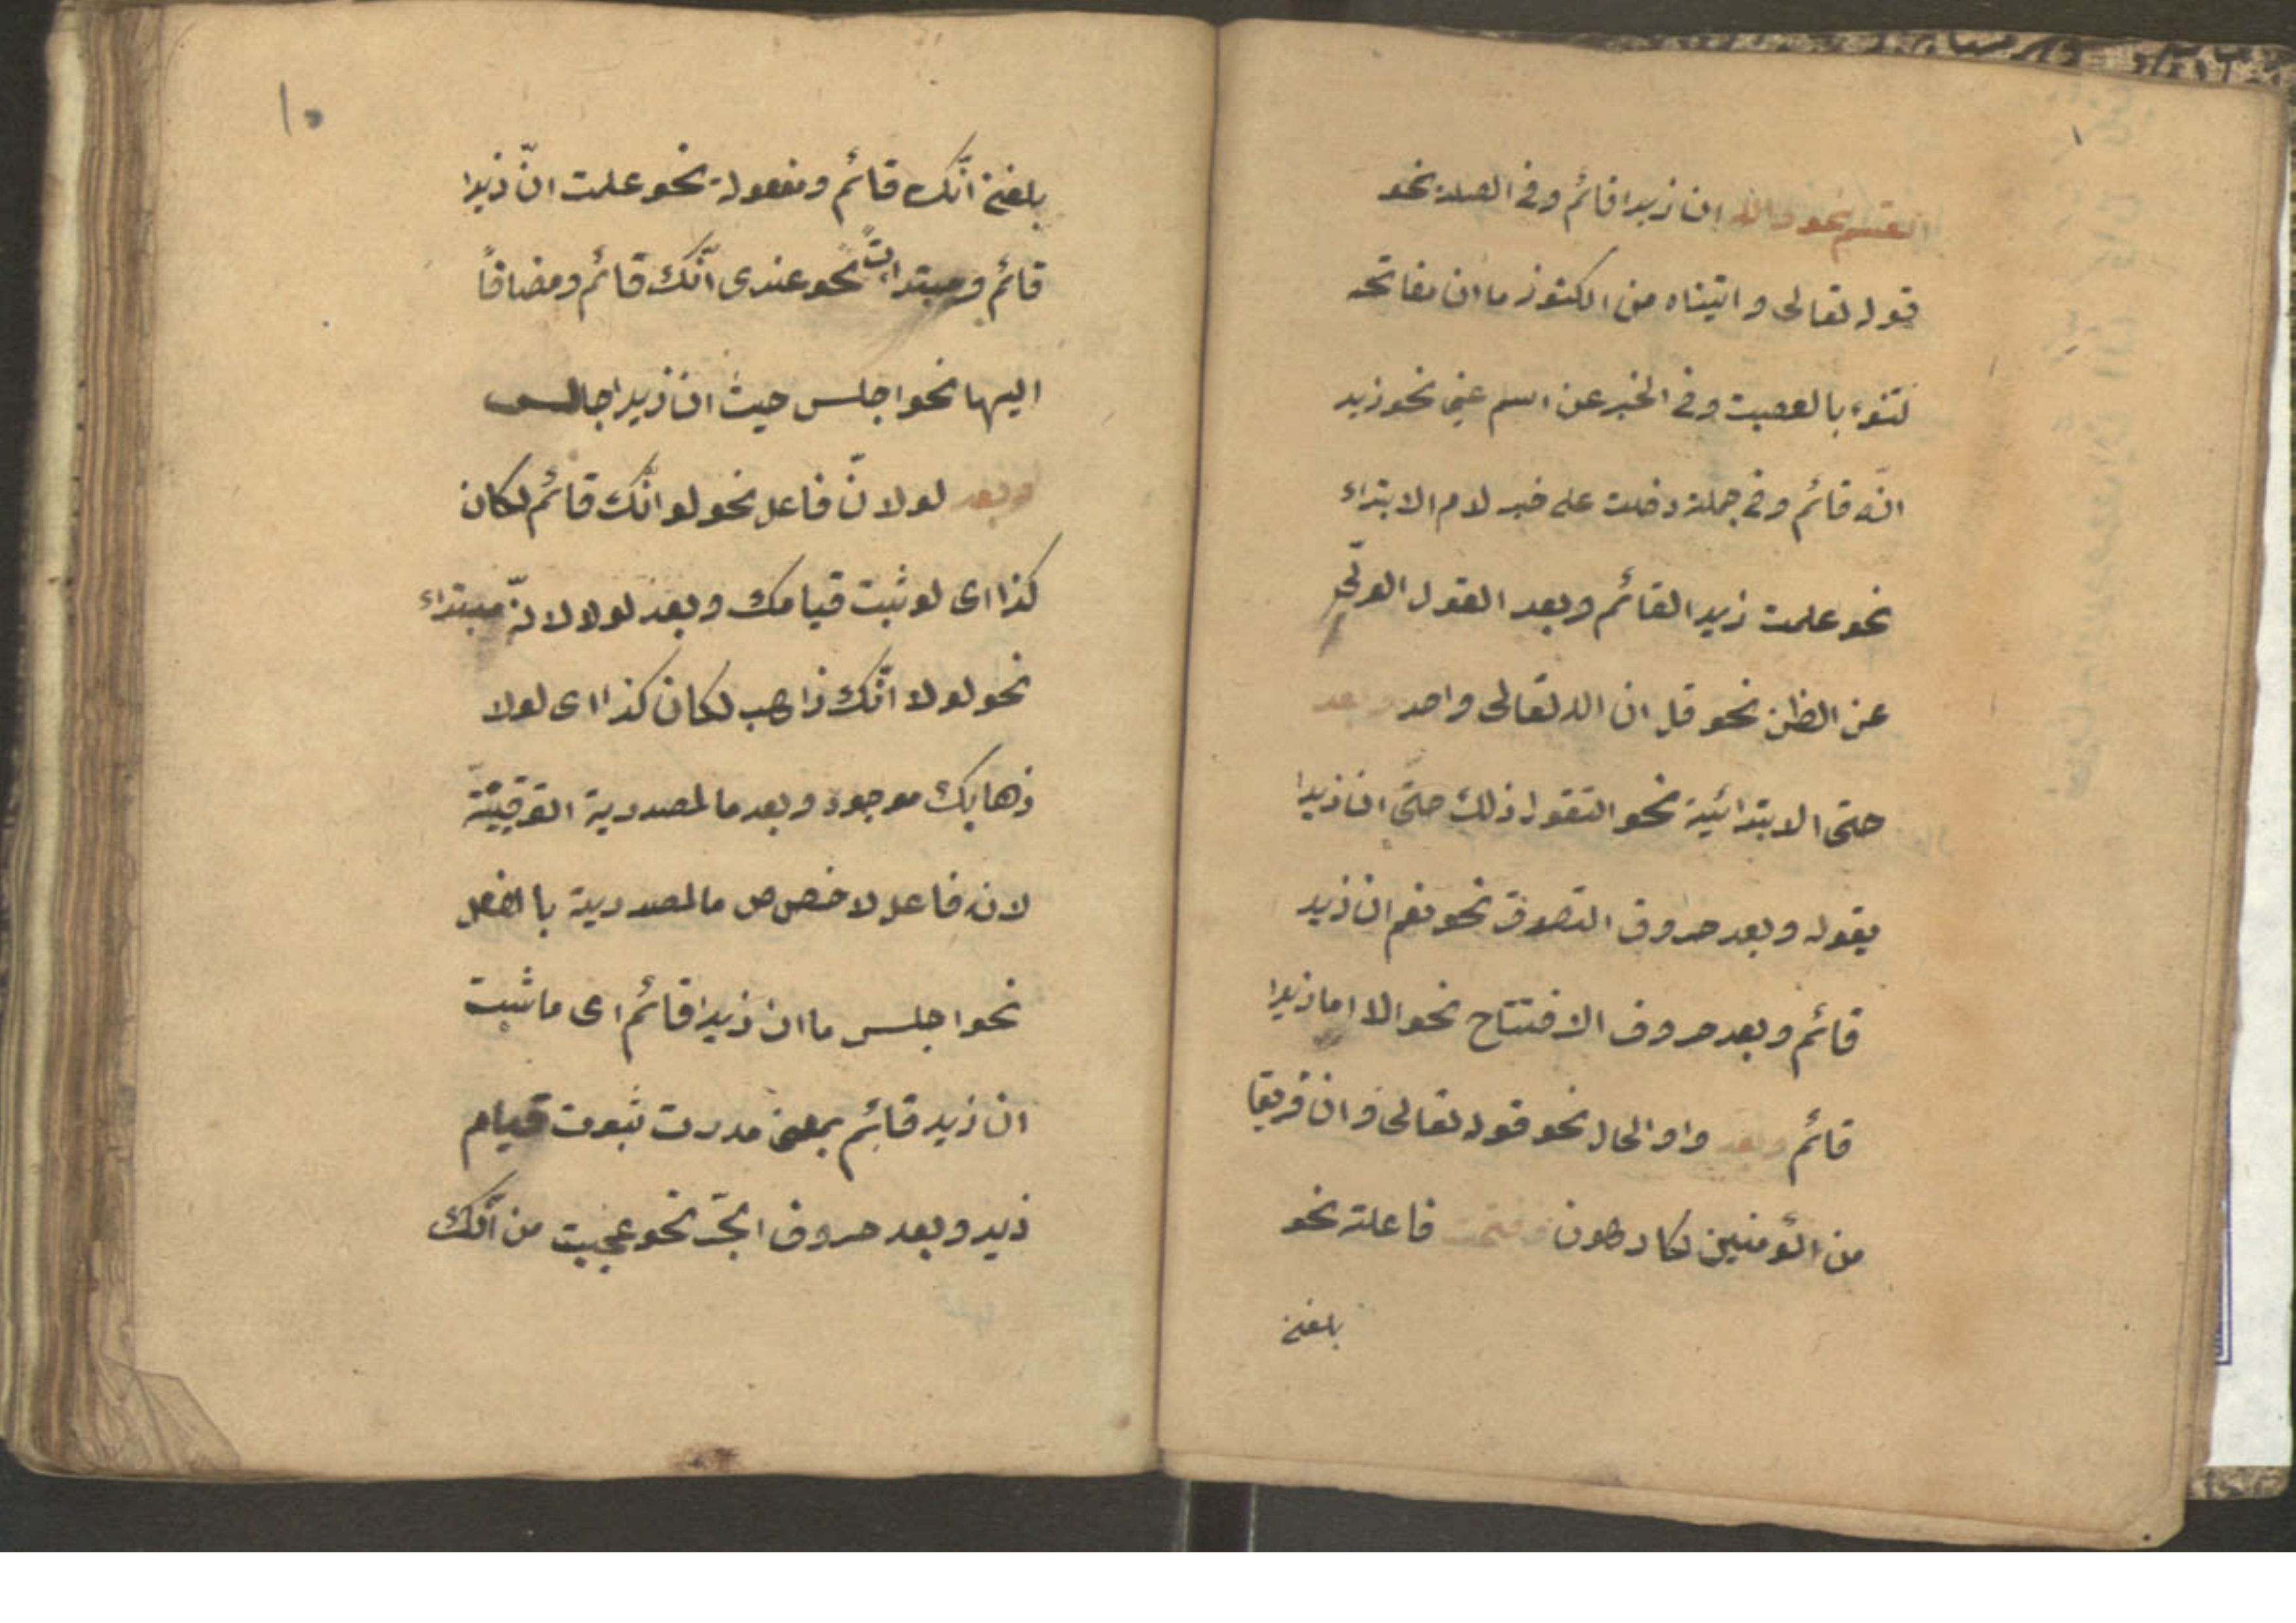 القسم نحو والله ان زيدا قائم وفى الصلة نحو
قوله تعالى واتيناه من الكنوز ما ان مفاتحه
لتنوء بالعصبة وفى الخبر عن اسم عين نحو زيد
انّه قائم وفى جملة دخلت على خبر لام الابتداء
نحو علمت زيد القائم وبعد القول العرّى
عن الظن نحو قل ان الله تعالى واحد وبعد
حتى الابتدائية نحو اتقول ذلك حتّى ان زيدا
يقوله وبعد حروف التصوق نحو نعم ان زيد
قائم وبعد حروف الافتتاح نحو الا اما زيدا
قائم وبعد واو الحال نحو قوله تعالى وان فريقا
من المؤمنين لكارهون وفتحت فاعلة نحو
بلغنى
١٠
بلغنى انّك قائم ومفعولة نحو علمت انّ زيدا
قائم ومبتدات نحو عندى انّك قائم ومضافاً
اليها نحو اجلس حيث ان زيدا جالس
وبعد لو لانّ فاعل نحو لو انّك قائم لكان
كذا اى لو ثبت قيامك وبعد لولا لانّه مبتداء
نحو لولا انّك ذاهب لكان كذا اى لولا
ذهابك موجود وبعد ما لمصدرية التوقيتيّة
لانه فاعل لاخصاص ما لمصدرية بالفعل
نحو اجلس ما ان زيدا قائم اى ما ثبت
ان زيد قائم بمعنى مدرت ثبوت قيام
زيد وبعد حروف الجرّ نحو عجبت من انّك